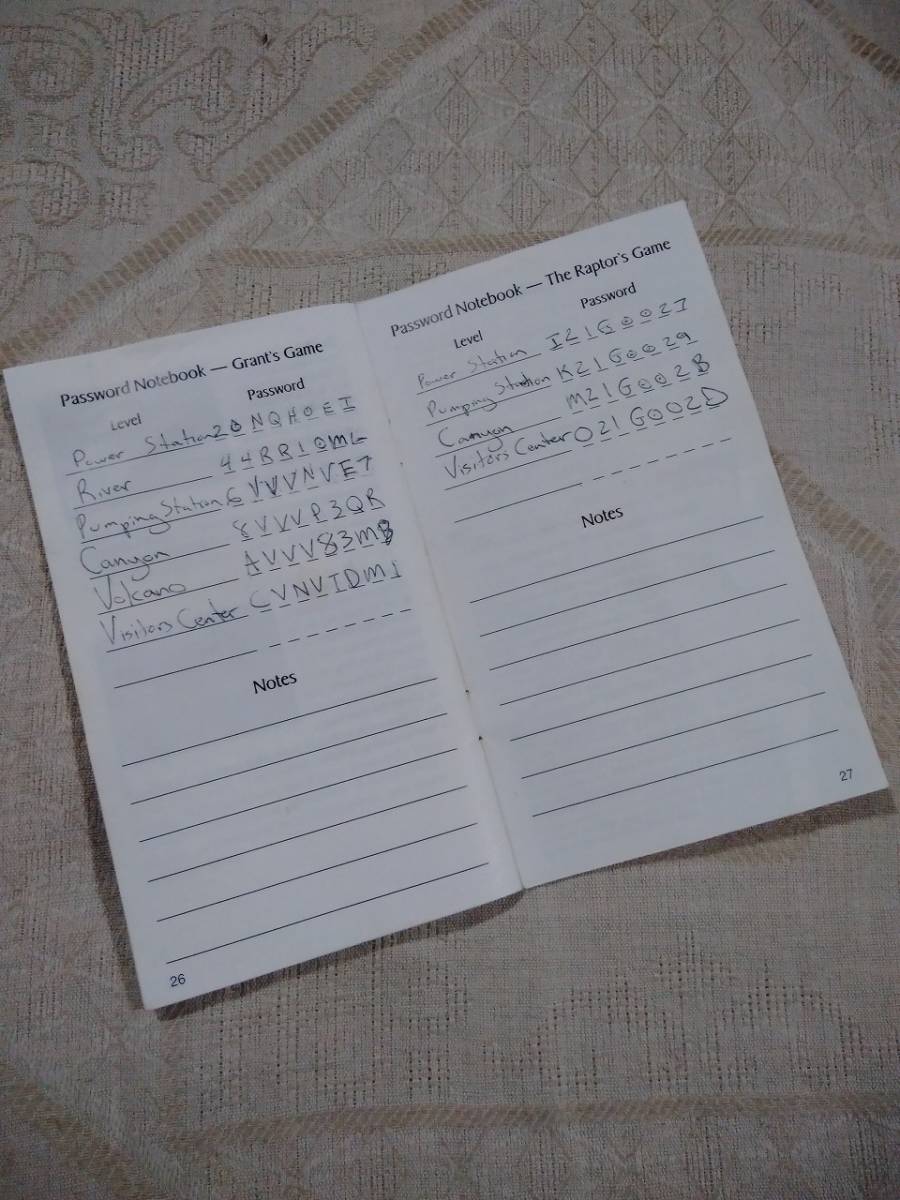 Password Notebook — Grant's Game
Level Password
Power Station 20NQHOEI
River 44RR10ML
Pumping Station 6VVVNVE7
Canyon 8VVVP3QR
Volcano AVVV83MB
Visitors Center CVNVIDMI
Notes
26
Password Notebook — The Raptor's Game
Level Password
Power Station I21G0027
Pumping Station K21G0029
Canyon M21G002B
Visitors Center O21G002D
Notes
27